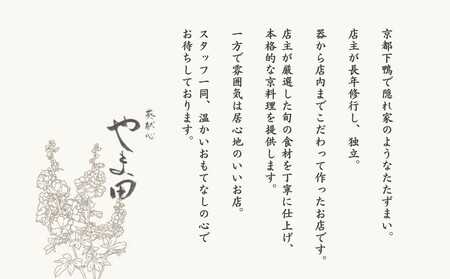 京都下鴨で隠れ家のようなたたずまい。
店主が長年修行し、独立。
器から店内までこだわって作ったお店です。
店主が厳選した旬の食材を丁寧に仕上げ、
本格的な京料理を提供します。
一方で雰囲気は居心地のいいお店。
スタッフ一同、温かいおもてなしの心で
お待ちしております。
やま田